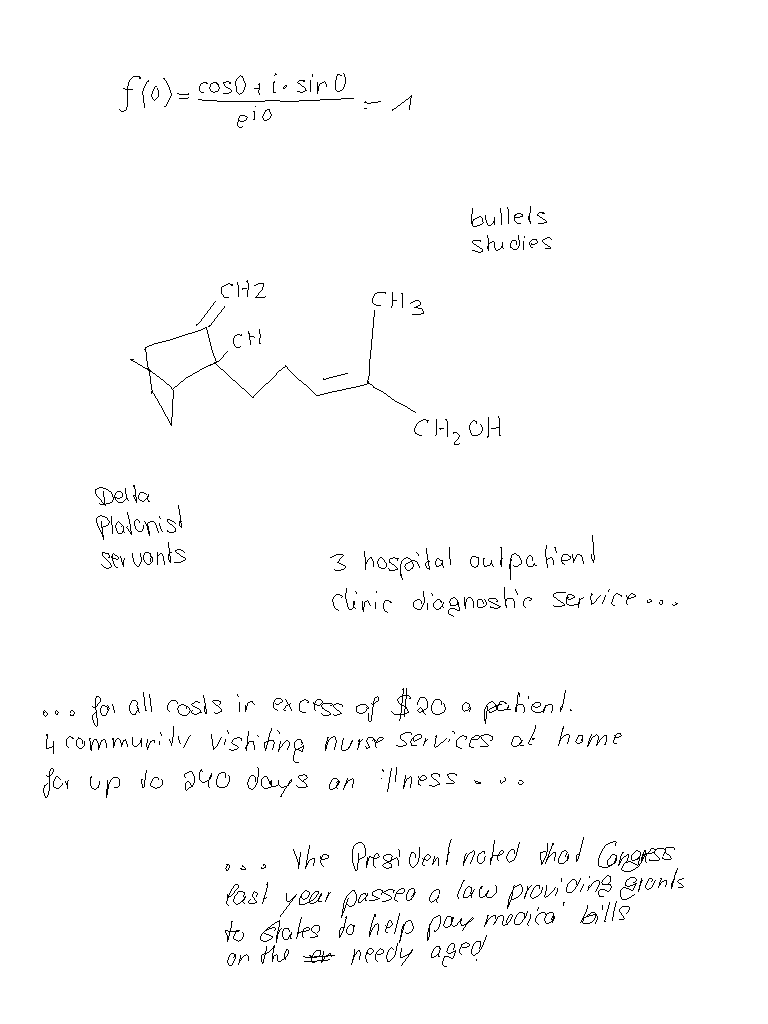 f(0) = cos0 + i · sin0 / e^i0 = 1
bullets
studies
CH2
CH3
CH
CH2 OH
Delta
Platonist
servants
3 hospital outpatient
clinic diagnostic service...
... for all costs in excess of $20 a patient.
4 community vishiting nurse services at home
for up to 240 days an illness ...
... the President noted that Congress
last year passed a law providing grants
to states to help pay medical bills
on the needy aged